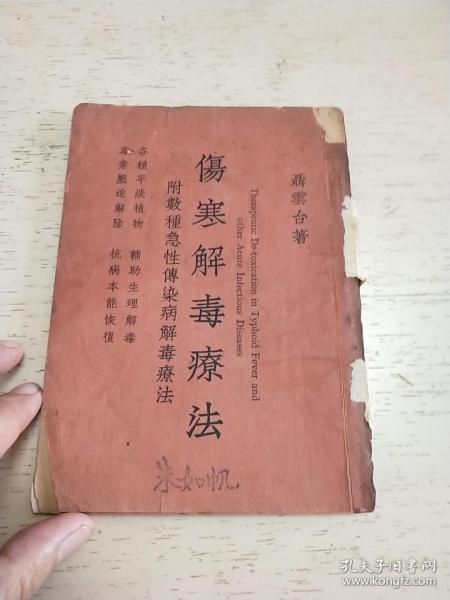 聶雲台著
Therapeutic De-toxication in Typhoid Fever and
other Acute Infectious Diseases
傷寒解毒療法
附數種急性傳染病解毒療法
各種平淡植物 輔助生理解毒
毒素壓迫解除 抗病本能恢復
朱如帆
孔夫子旧书网
www.kongfz.com